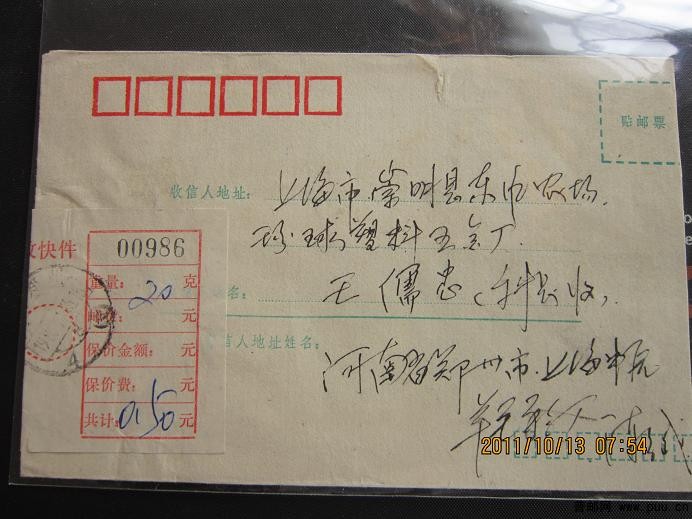 贴邮票
收信人地址:
上海市崇明县东风农场
环球塑料五金厂
名:
王儒忠(科长收)
快件
00986
重量: 20 克
元
保价金额: 元
保价费: 元
共计: 0.50 元
信人地址姓名:
河南省郑州市上海
2011/10/13 07:54
www.puu.cn